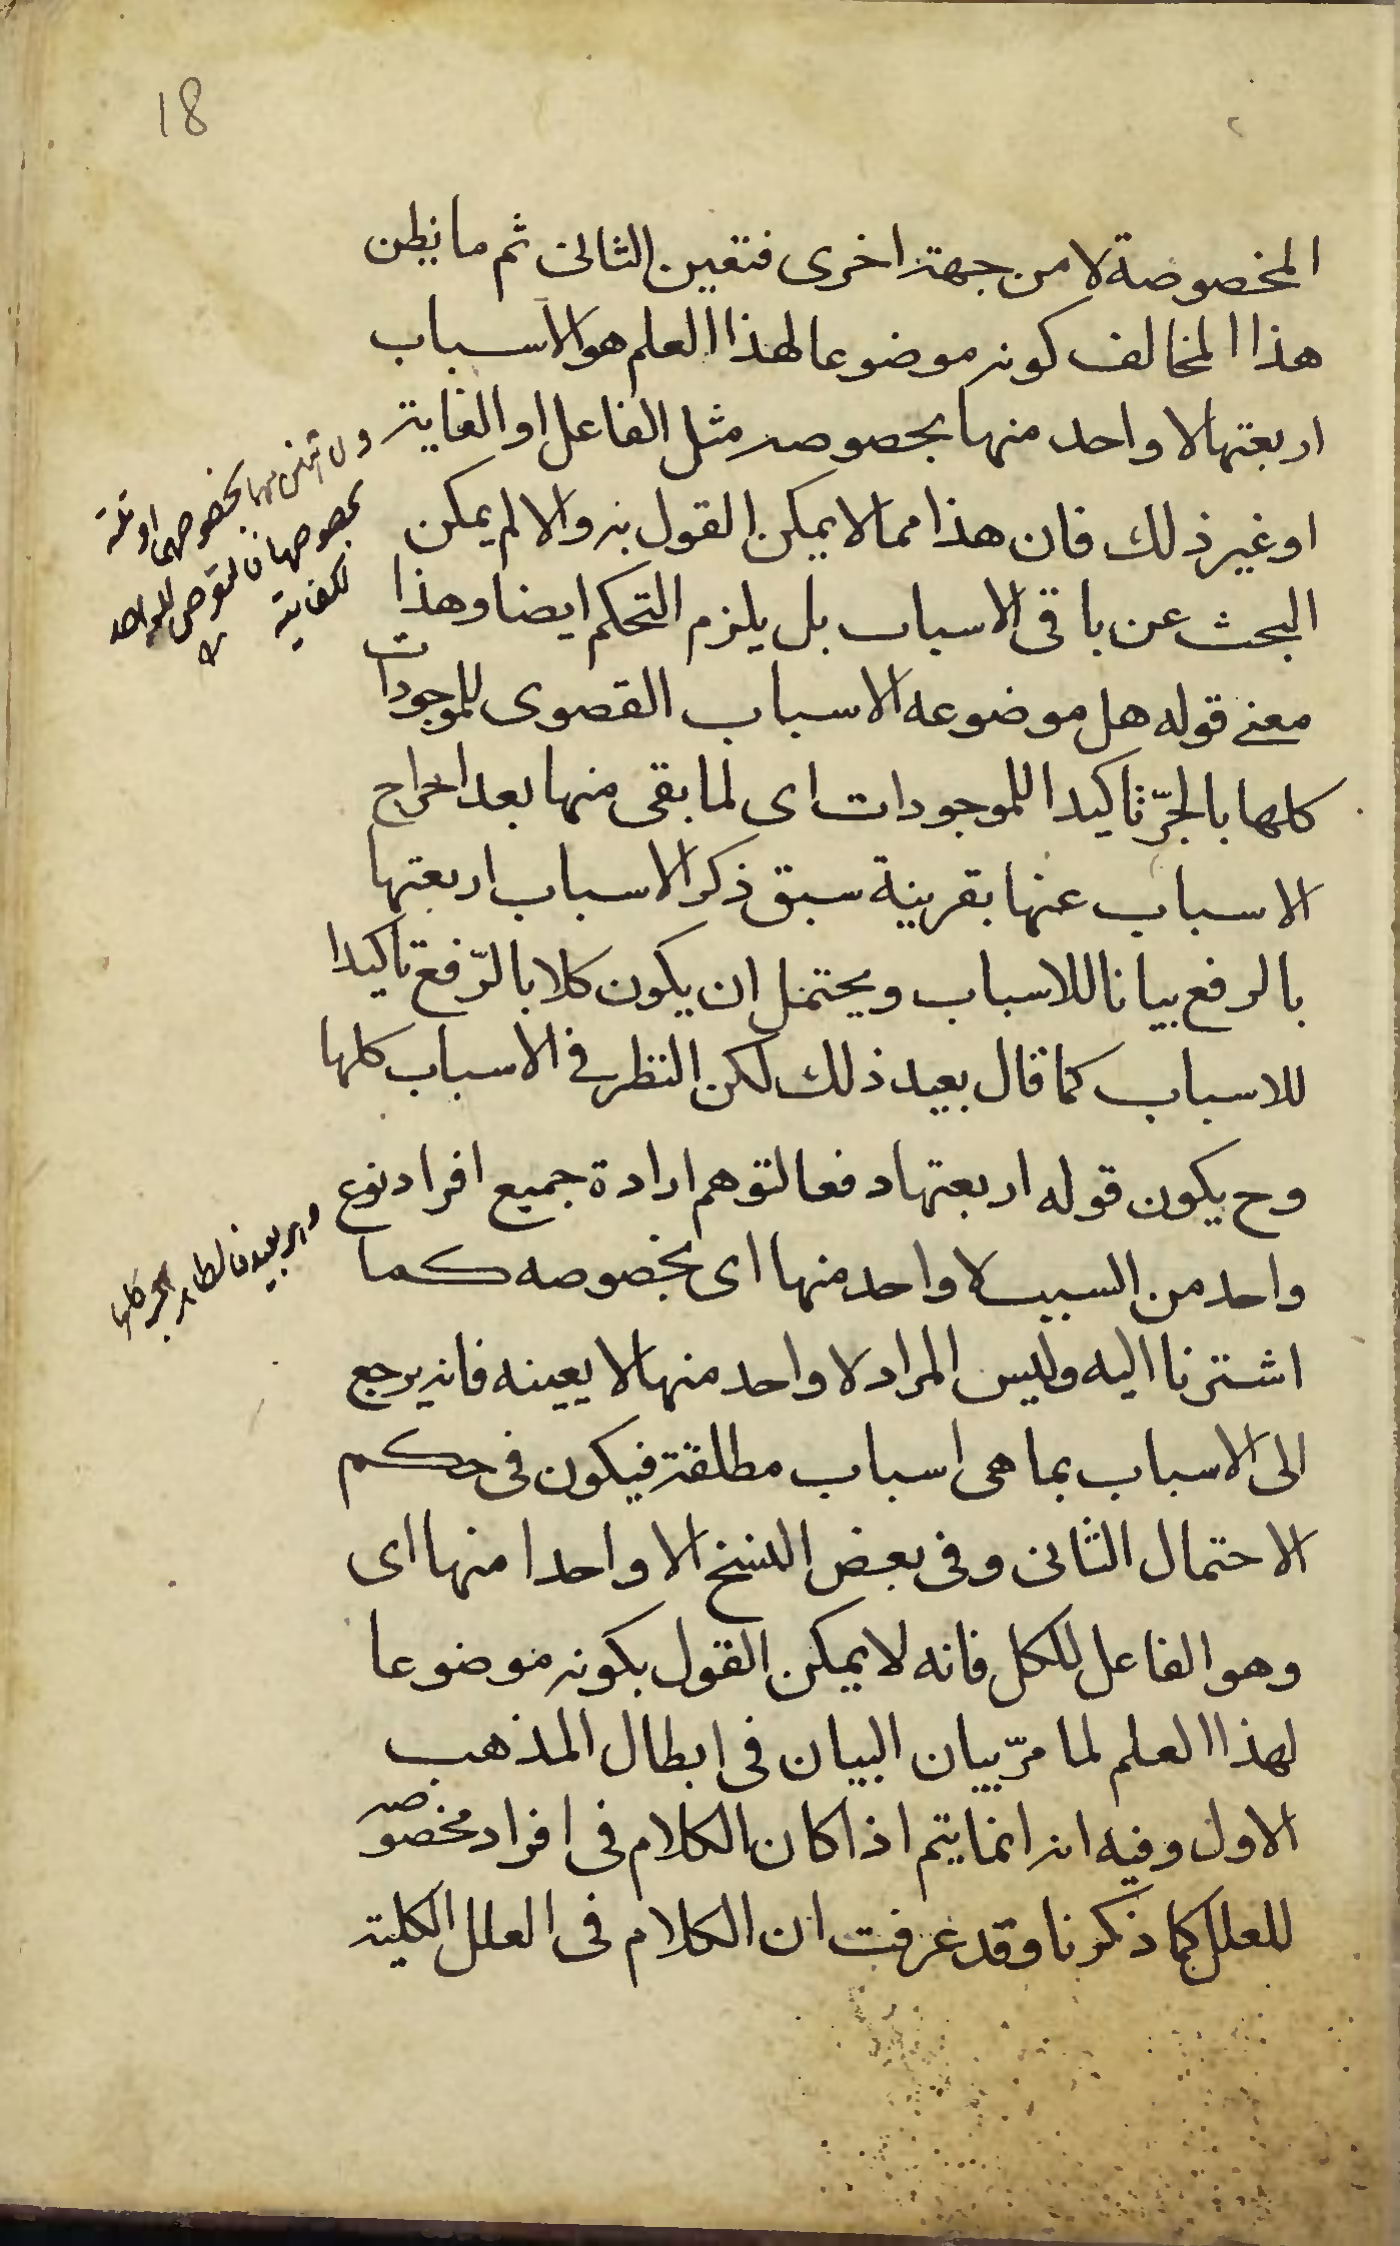 18
المخصوصة لا من جهة اخرى فتعين الثانى ثم ما نظن
هذا المخالف كونه موضوعا لهذا العلم هو الاسباب
اربعتها لا واحد منها بخصوصه مثل الفاعل او الغاية
او غير ذلك فان هذا مما لا يمكن القول به والا لم يمكن
البحث عن باقى الاسباب بل يلزم التحكم ايضا وهذا
معنى قوله هل موضوعه الاسباب القصوى للموجودات
كلها بالجرّ تاكيدا للموجودات اى لما بقى منها بعد اخراج
الاسباب عنها بقرينة سبق ذكر الاسباب اربعتها
بالرفع بيانا للاسباب ويحتمل ان يكون كلا بالرّفع تاكيدا
للاسباب كما قال بعيد ذلك لكن النظر فى الاسباب كلها
وح يكون قوله اربعتها دفعا لتوهم ارادة جميع افراد نوع
واحد من السبب لا واحد منها اى بخصوصه كما
اشترنا اليه وليس المراد لا واحد منها لا بعينه فانه يرجع
الى الاسباب بما هى اسباب مطلقة فيكون فى حكم
الاحتمال الثانى وفى بعض النسخ الا واحدا منها اى
وهو الفاعل للكل فانه لا يمكن القول بكونه موضوعا
لهذا العلم لما مرّ بيان البيان فى ابطال المذهب
الاول وفيه انه انما يتم اذا كان الكلام فى افراد مخصوصه
للعلل كما ذكرنا وقد عرفت ان الكلام فى العلل الكلية
بخصوصهما او ثلثة
بخصوصها